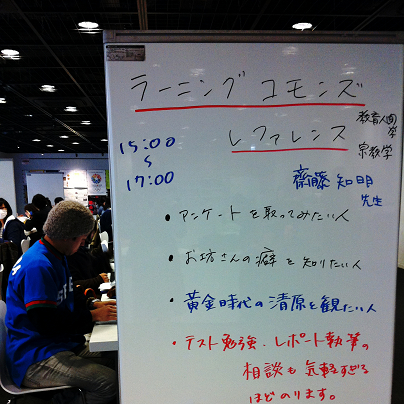 ラーニング コモンズ
レファレンス
教育人間学
宗教学
15:00
~
17:00
齋藤 知明
先生
・アンケートを取ってみたい人
・お坊さんの癖を知りたい人
・黄金時代の清原を観たい人
・テスト勉強、レポート執筆の
相談も気軽すぎる
ほどのります。